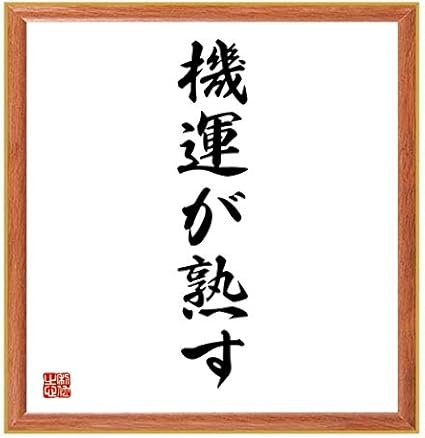 機運が熟す